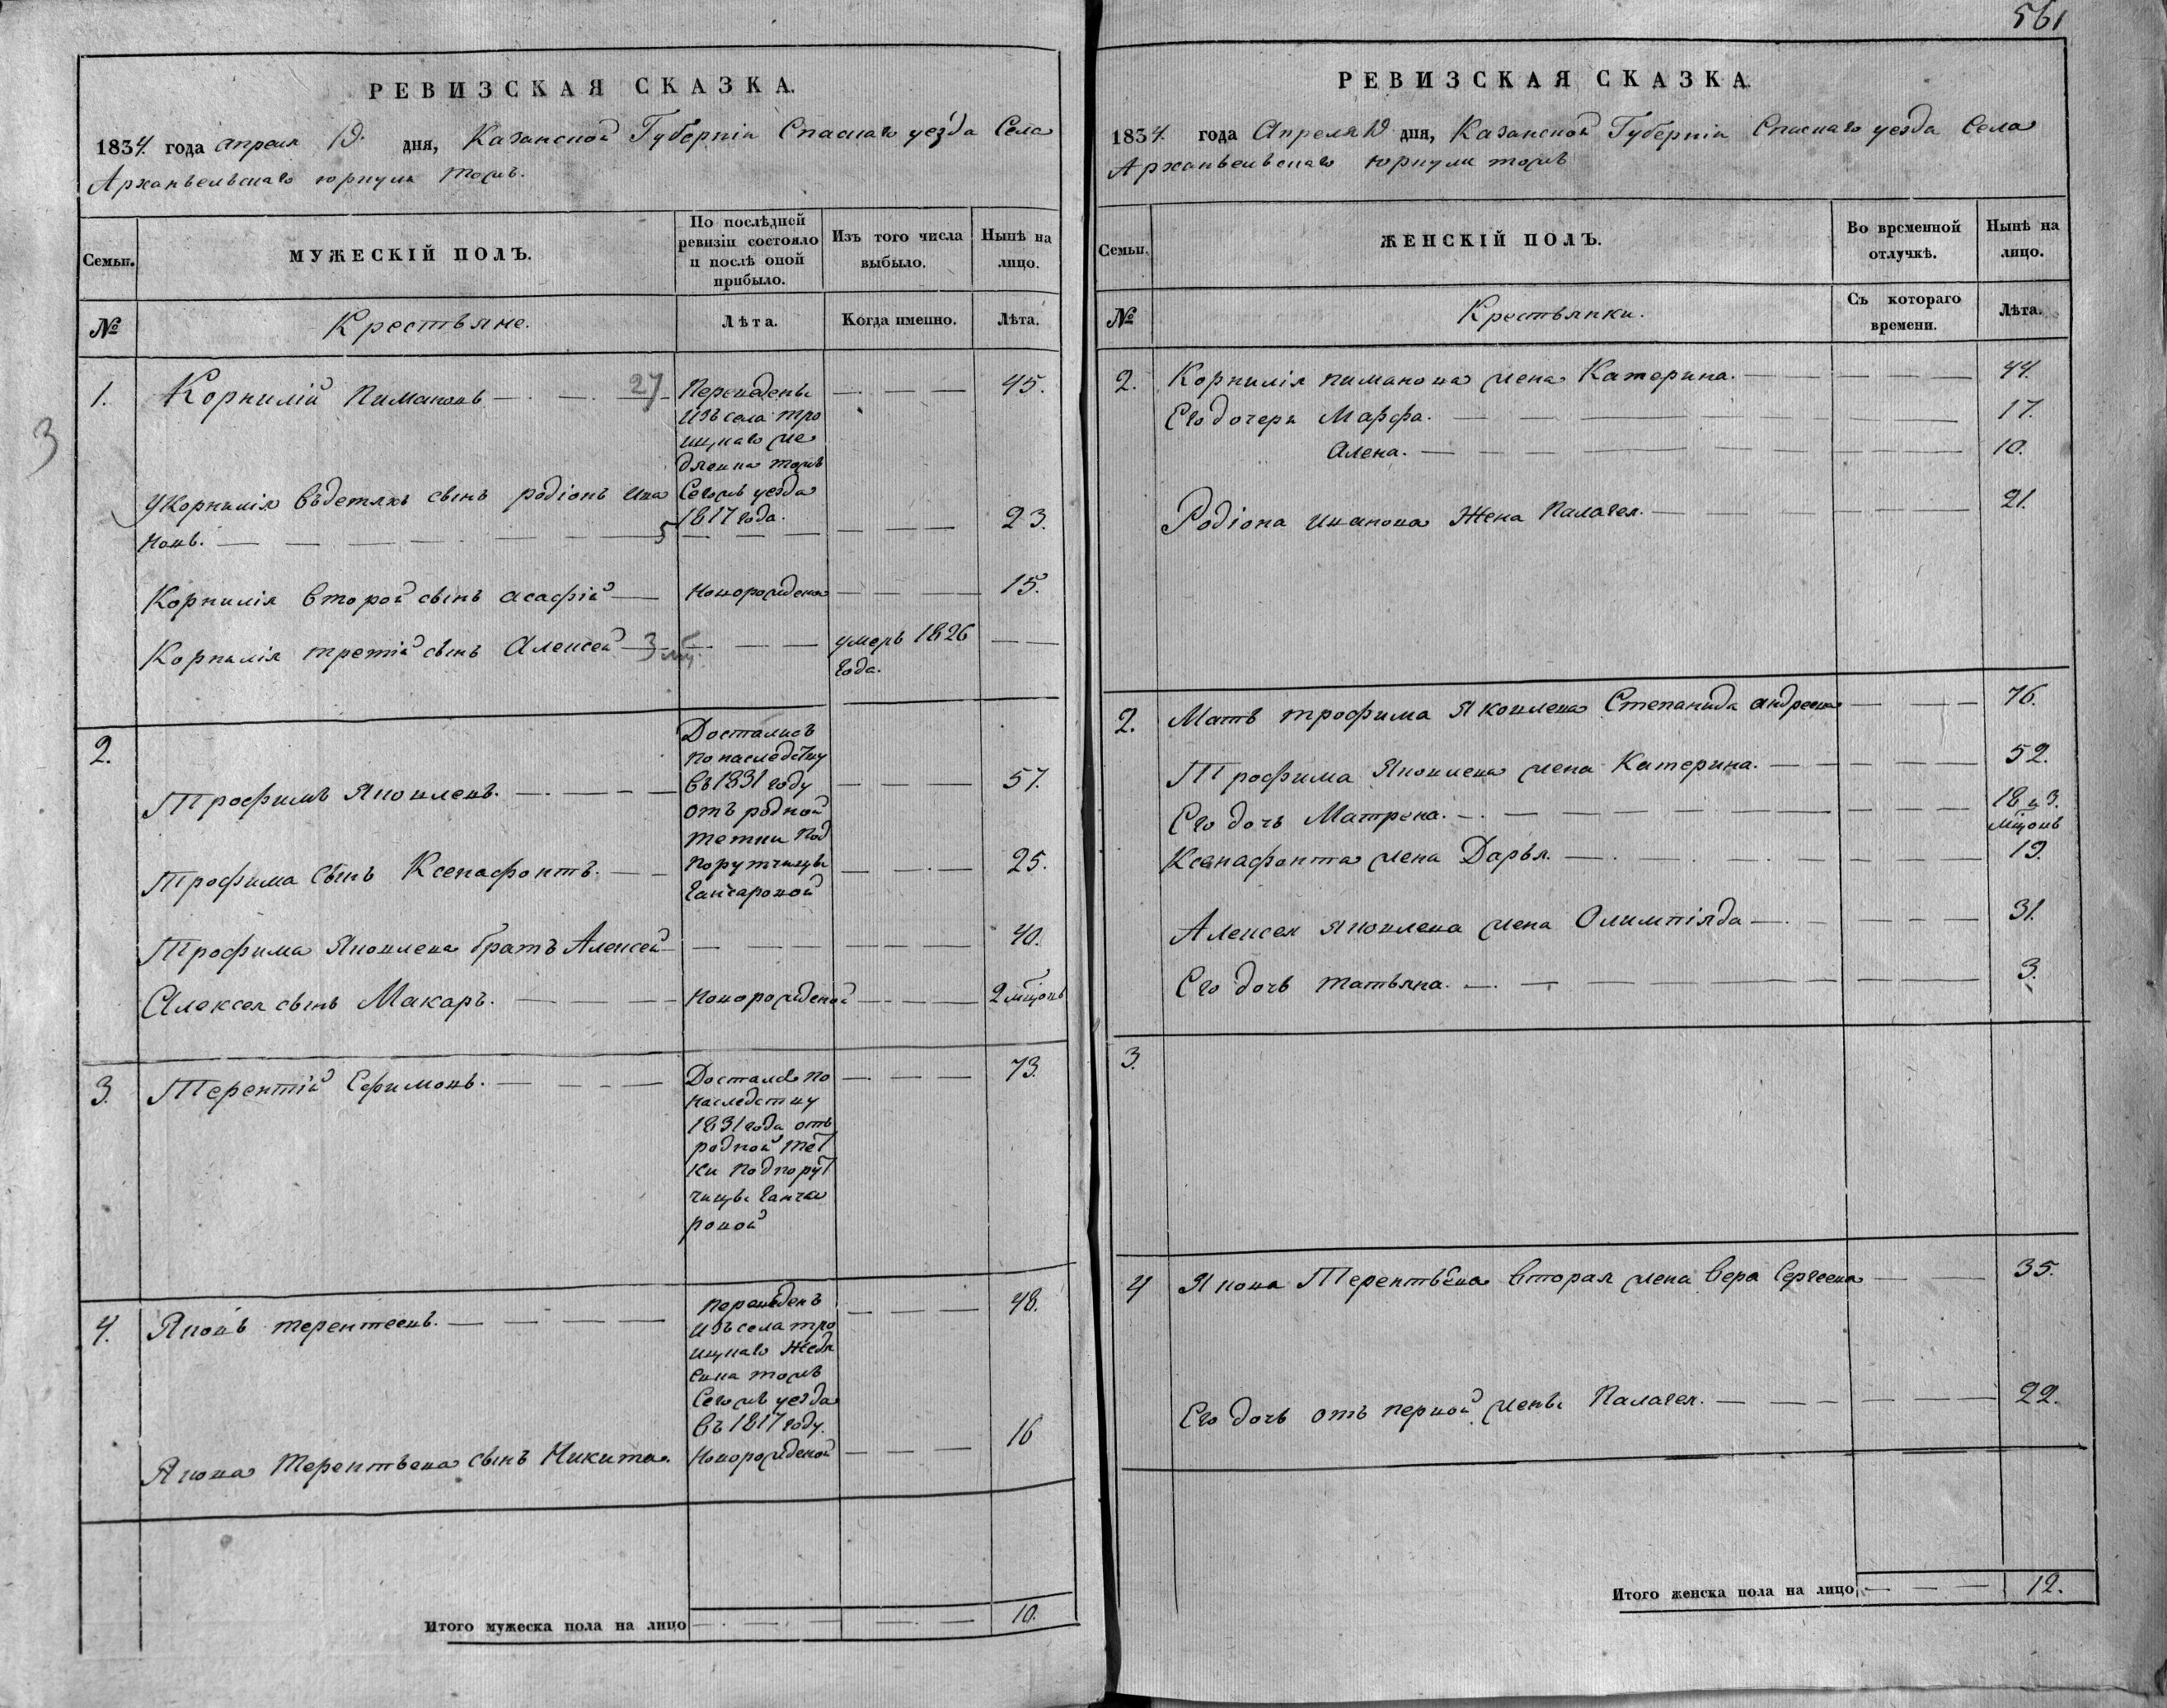 561
РЕВИЗСКАЯ СКАЗКА.
1834. года апреля 19. дня, Казанской Губерніи Спаскаго уезда Села
Архангельскаго юркули тожъ.
Семьи.
МУЖЕСКІЙ ПОЛЪ.
По послѣдней
ревизіи состояло
и послѣ оной
прибыло.
Изъ того числа
выбыло.
Нынѣ на
лицо.
№
Крестьяне.
Лѣта.
Когда именно.
Лѣта.
1. Корнилій Пимановъ 27 Переведенъ 45.
изъ села тро
ицкаго же
3
дяевка тожъ
У Корнилія въ детяхъ сынъ родіонъ ива Сегожъ уезда
1817 года.
новъ. 5 23.
Корнилія второй сынъ асафій новорожденой 15.
Корнилія третій сынъ Алексей 3 мц. умеръ 1826
года.
2. Достались
по наследству
Трофимъ Яковлевъ. въ 1831 году 57.
отъ родной
тетки Под
Трофима сынъ Ксенафонтъ. поручицы 25.
Ганчаровой
Трофима Яковлева братъ Алексей 40.
Алексея сынъ Макаръ. новорожденой 2 мцовъ
3. Терентій Ефимовъ. Достался по 73.
наследству
1831 года отъ
родной тет
ки Подпорут
чицы Ганча
ровой
4. Яковъ терентеевъ. переведенъ 48.
изъ села тро
ицкаго Жедя
евка тожъ
Сегожъ уезда
въ 1817 году.
Якова Терентьева сынъ Никита. новорожденой 16
Итого мужеска пола на лицо 10.
РЕВИЗСКАЯ СКАЗКА.
1834. года Апреля 19 дня, Казанской Губерніи Спаскаго уезда Села
Архангельскаго юркули тожъ
Семьи.
ЖЕНСКІЙ ПОЛЪ.
Во временной
отлучкѣ.
Нынѣ на
лицо.
№
Крестьянки.
Съ котораго
времени.
Лѣта.
2. Корнилія пиманова жена Катерина. 44.
Его дочери Марфа. 17.
Алена. 10.
Родіона иванова Жена Палагея. 21.
2. Мать трофима Яковлева Степанида андреева 76.
Трофима Яковлева жена Катерина. 52.
Его дочь Матрена. 18 и 3.
мцовъ
Ксенафонта жена Дарья. 19.
Алексея яковлева жена Олимпіяда 31.
Его дочь татьяна. 3.
3.
4 Якова Терентьева вторая жена Вера Сергеева 35.
Его дочь отъ первой жены Палагея. 22.
Итого женска пола на лицо 12.